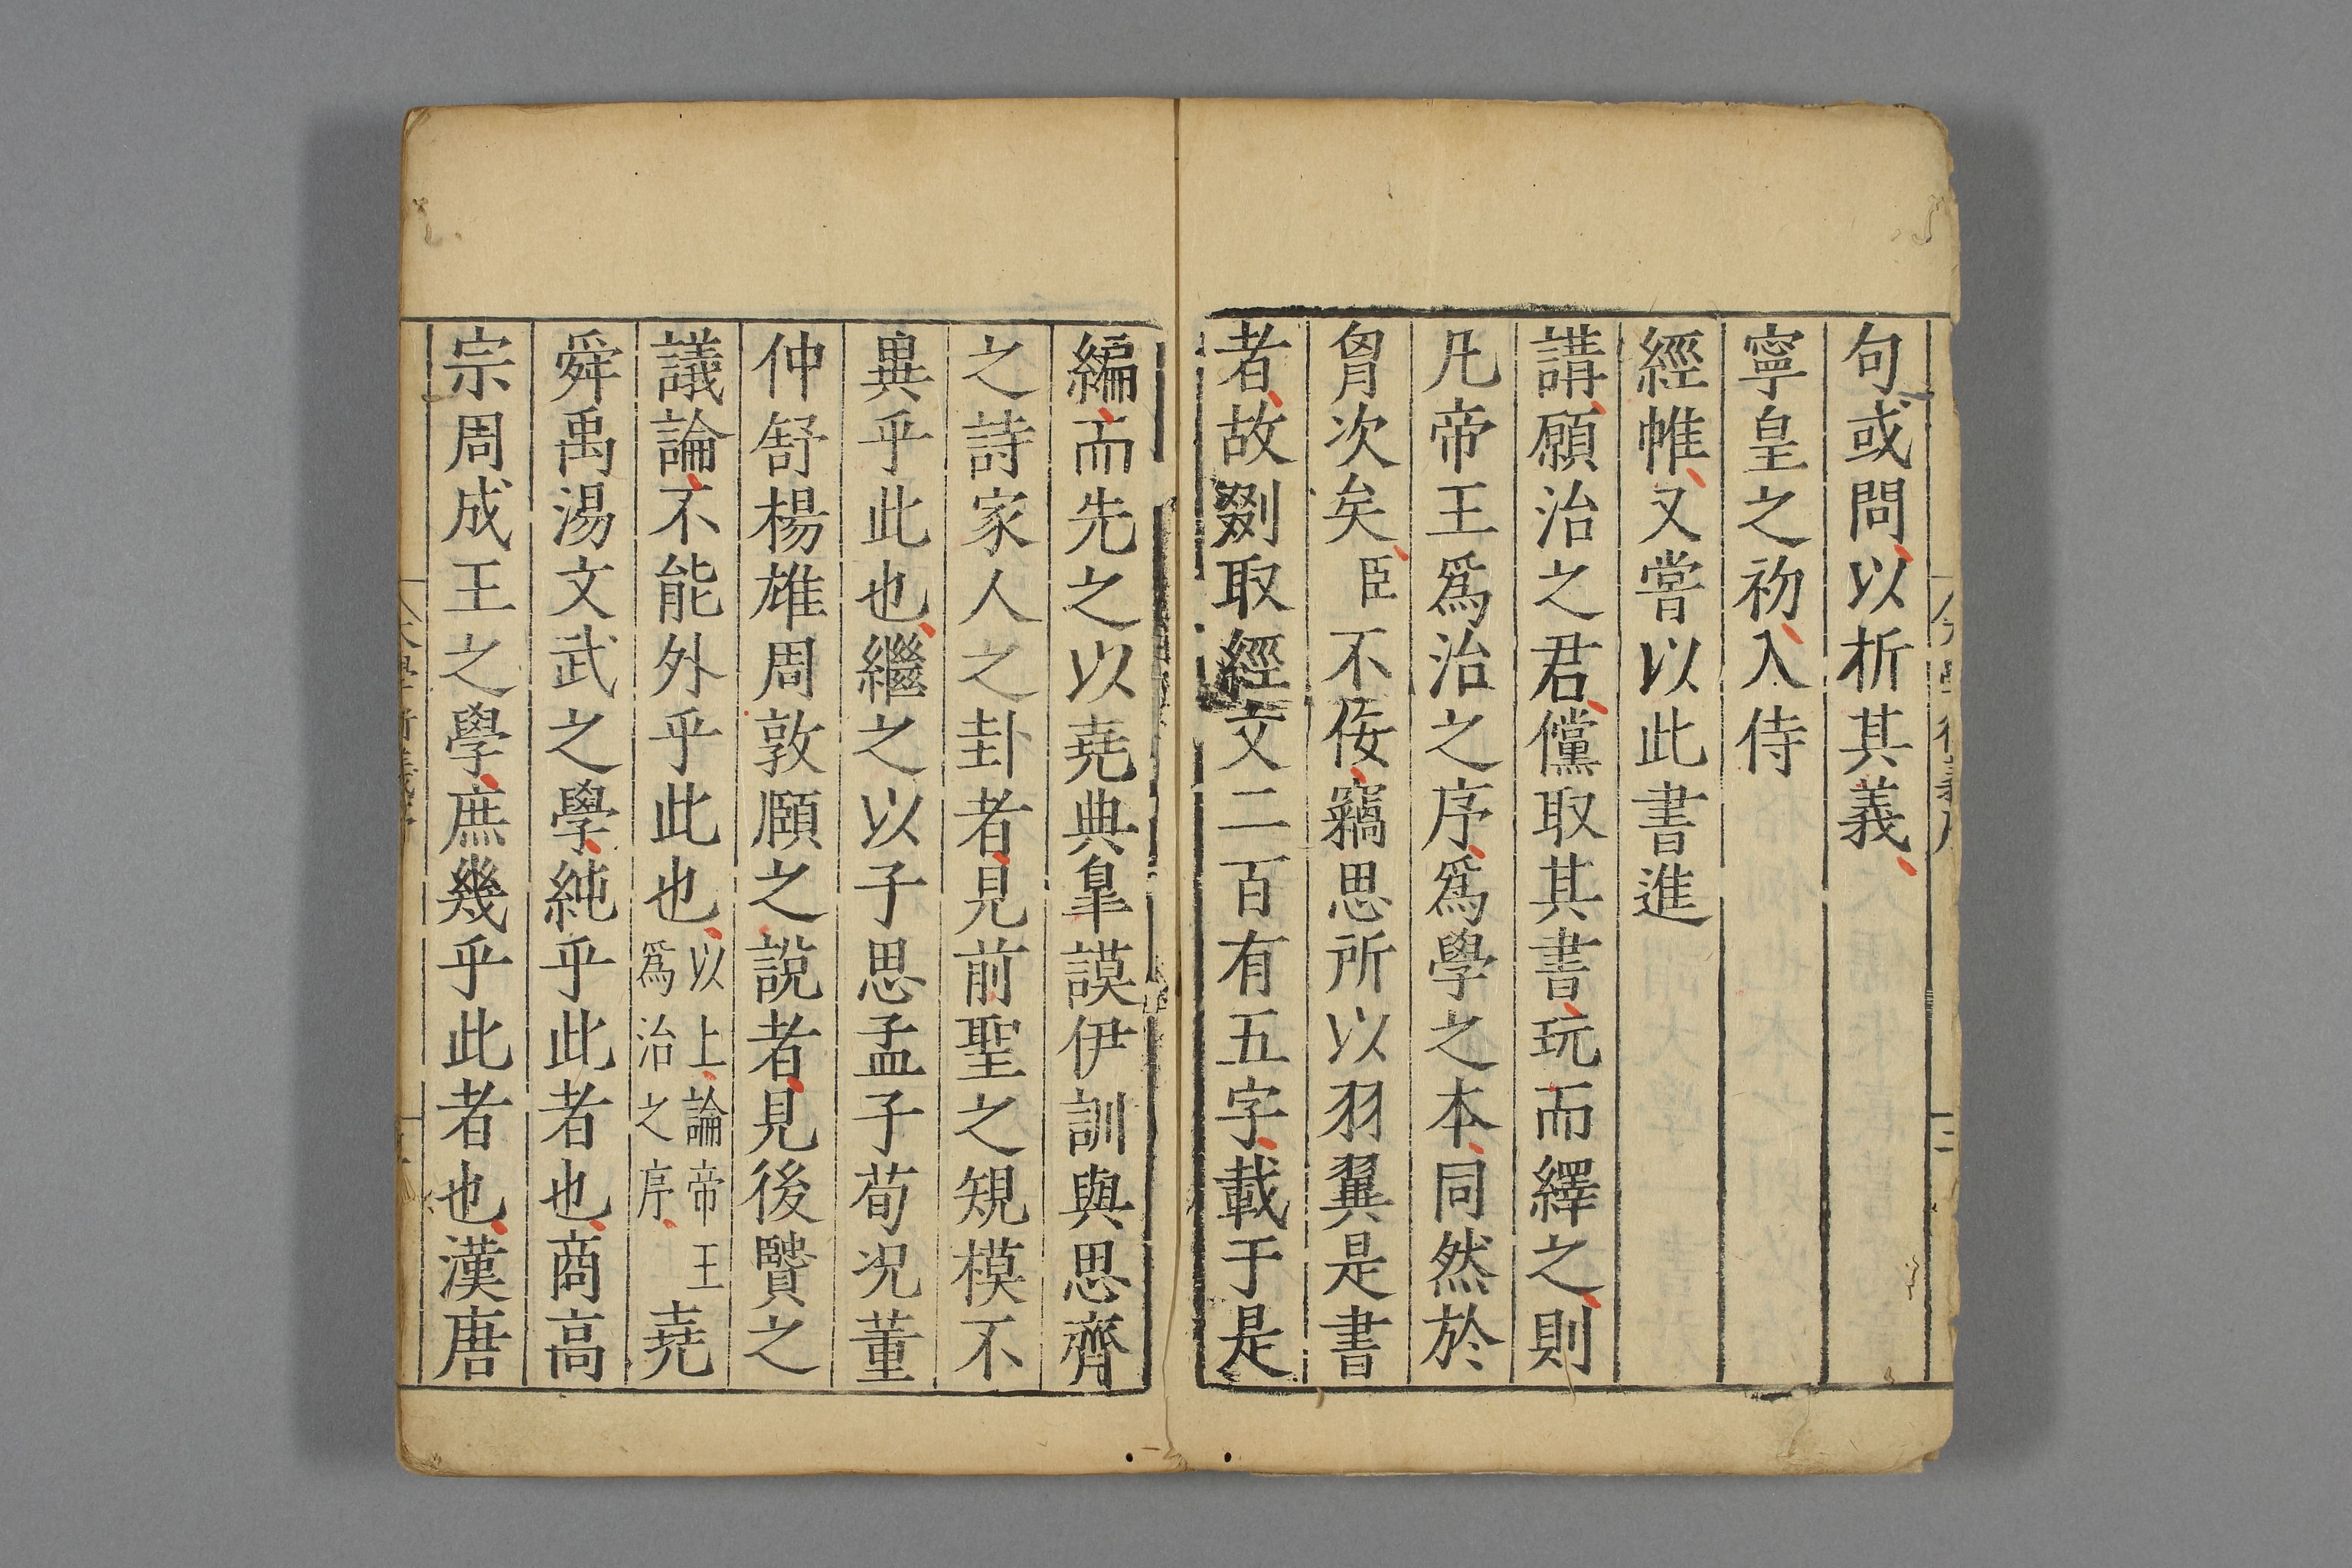 句或問以析其義
寧皇之初入侍
經帷又嘗以此書進
講願治之君儻取其書玩而繹之則
凡帝王爲治之序爲學之本同然於
胷次矣臣不佞竊思所以羽翼是書
者故剟取經文二百有五字載于是
編而先之以堯典臯謨伊訓與思齊
之詩家人之卦者見前聖之規模不
異乎此也繼之以子思孟子荀况董
仲舒楊雄周敦頤之說者見後賢之
議論不能外乎此也以上論帝王爲治之序堯
舜禹湯文武之學純乎此者也商高
宗周成王之學庶幾乎此者也漢唐